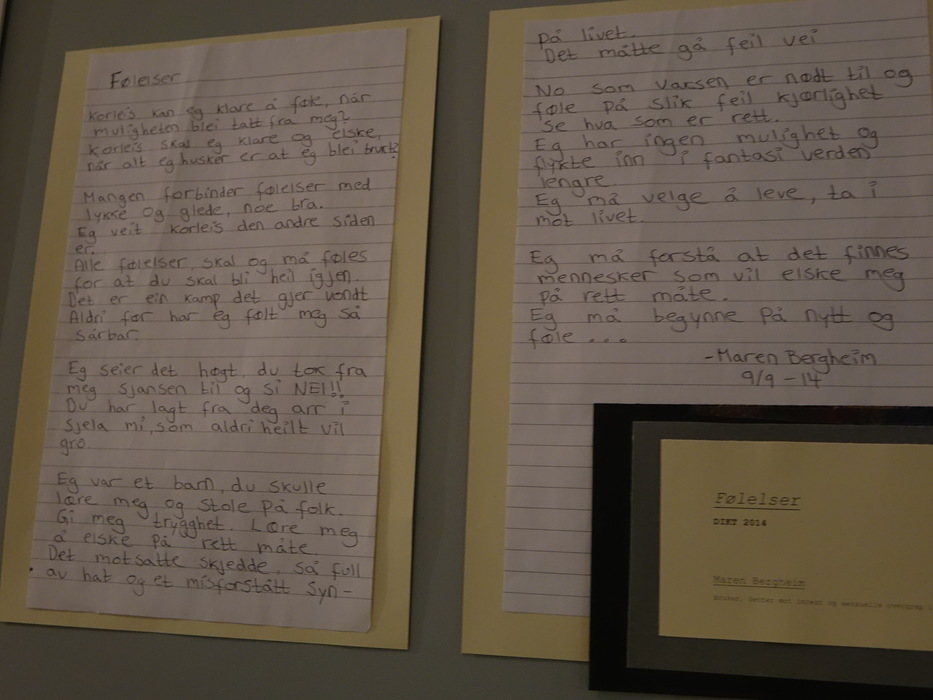 Følelser
Korleis kan eg klare å føle, når
muligheten blei tatt fra meg?
Korleis skal eg klare og elske,
når alt eg husker er at eg blei brukt?
Mangen forbinder følelser med
lykke og glede, noe bra.
Eg veit korleis den andre siden
er.
Alle følelser, skal og må føles
for at du skal bli heil igjen.
Det er ein kamp det gjer vondt
Aldri før har eg følt meg så
sårbar.
Eg seier det høgt, du tok fra
meg sjansen til og si NEI!!
Du har lagt fra deg arr i
sjela mi, som aldri heilt vil
gro.
Eg var et barn, du skulle
lære meg og stole på folk.
Gi meg trygghet. Lære meg
å elske på rett måte.
Det motsatte skjedde, så full
av hat og et misforstått syn-
på livet.
Det måtte gå feil vei
No som vaksen er nødt til og
føle på slik feil kjærlighet
se hva som er rett.
Eg har ingen mulighet og
flykte inn i fantasi verden
lengre
Eg må velge å leve, ta i
mot livet.
Eg må forstå at det finnes
mennesker som vil elske meg
på rett måte.
Eg må begynne på nytt og
føle ...
-Maren Bergheim
9/9-14
Følelser
DIKT 2014
Maren Bergheim
Bruker, Senter mot incest og seksuelle overgrep